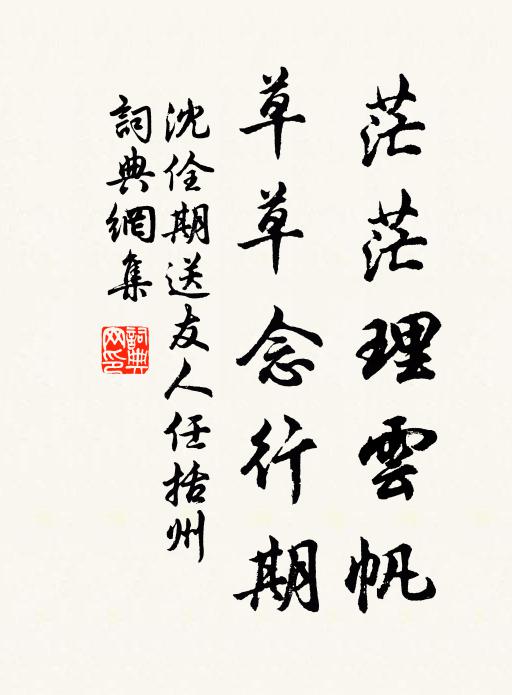 茫茫理雲帆
草草念行期
沈佺期送友人任括州
詞典網集
詞典網印